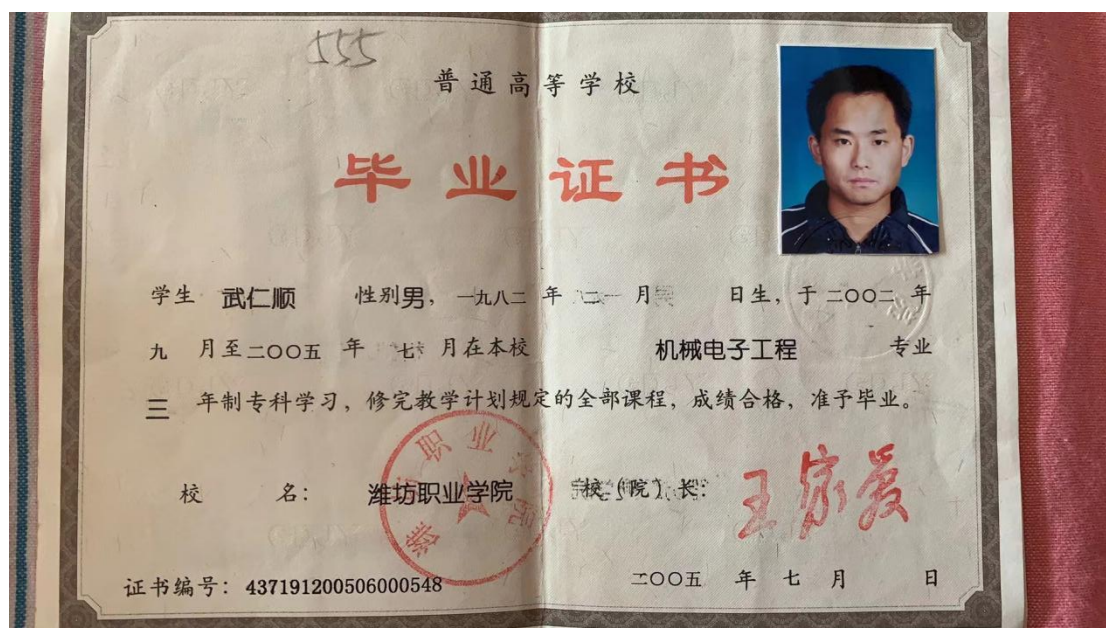 555
普通高等学校
毕业证书
学生 武仁顺 性别男，一九八二 年 二 月 日生，于二〇〇二 年
九 月至二〇〇五 年 七 月在本校 机械电子工程 专业
三 年制专科学习，修完教学计划规定的全部课程，成绩合格，准予毕业。
校 名： 潍坊职业学院 校（院）长： 王家爱
证书编号：437191200506000548 二〇〇五 年 七 月 日